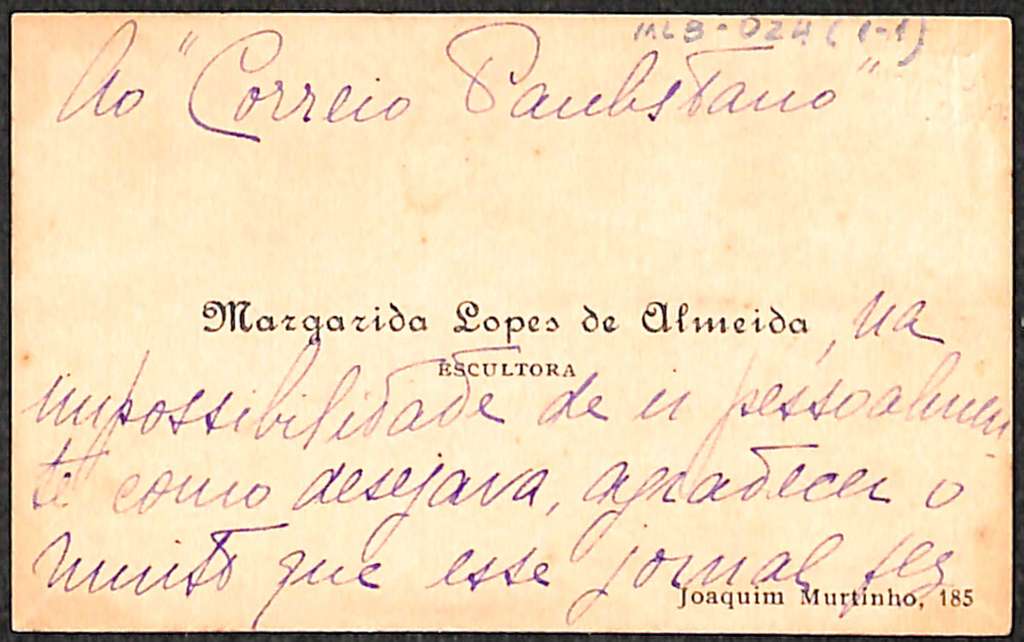 MLB-024(1-1)
Ao "Correio Paulistano"
Margarida Lopes de Almeida, na
ESCULTORA
impossibilidade de ir pessoalmen
te como desejava, agradecer o
muito que esse jornal fez
Joaquim Murtinho, 185